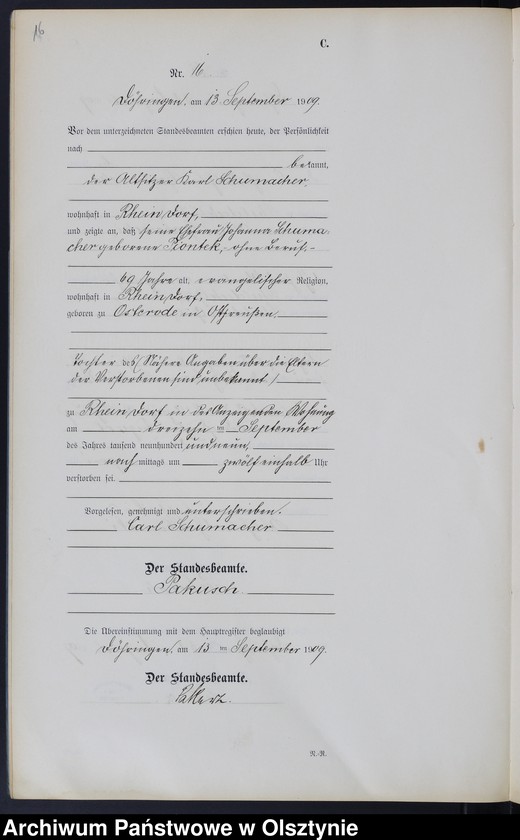 16
C.
Nr. 16
Döhringen, am 13. September 1909.
Vor dem unterzeichneten Standesbeamten erschien heute, der Persönlichkeit
nach
bekannt,
der Altsitzer Karl Schumacher,
wohnhaft in Rheinsdorf,
und zeigte an, daß seine Ehefrau Johanna Schuma
cher geborene Piontek, ohne Beruf,-
69 Jahre alt, evangelischer Religion,
wohnhaft in Rheinsdorf,
geboren zu Osterode in Ostpreußen,
Tochter des/ Nähere Angaben über die Eltern
der Verstorbenen sind unbekannt /
zu Rheinsdorf in des Anzeigenden Wohnung
am dreizehn ten September
des Jahres tausend neunhundert und neun,
nach mittags um zwölf einhalb Uhr
verstorben sei.
Vorgelesen, genehmigt und unterschrieben.
Carl Schumacher
Der Standesbeamte.
Pakusch
Die Übereinstimmung mit dem Hauptregister beglaubigt
Döhringen, am 13 ten September 1909.
Der Standesbeamte.
N.-R.
Archiwum Państwowe w Olsztynie